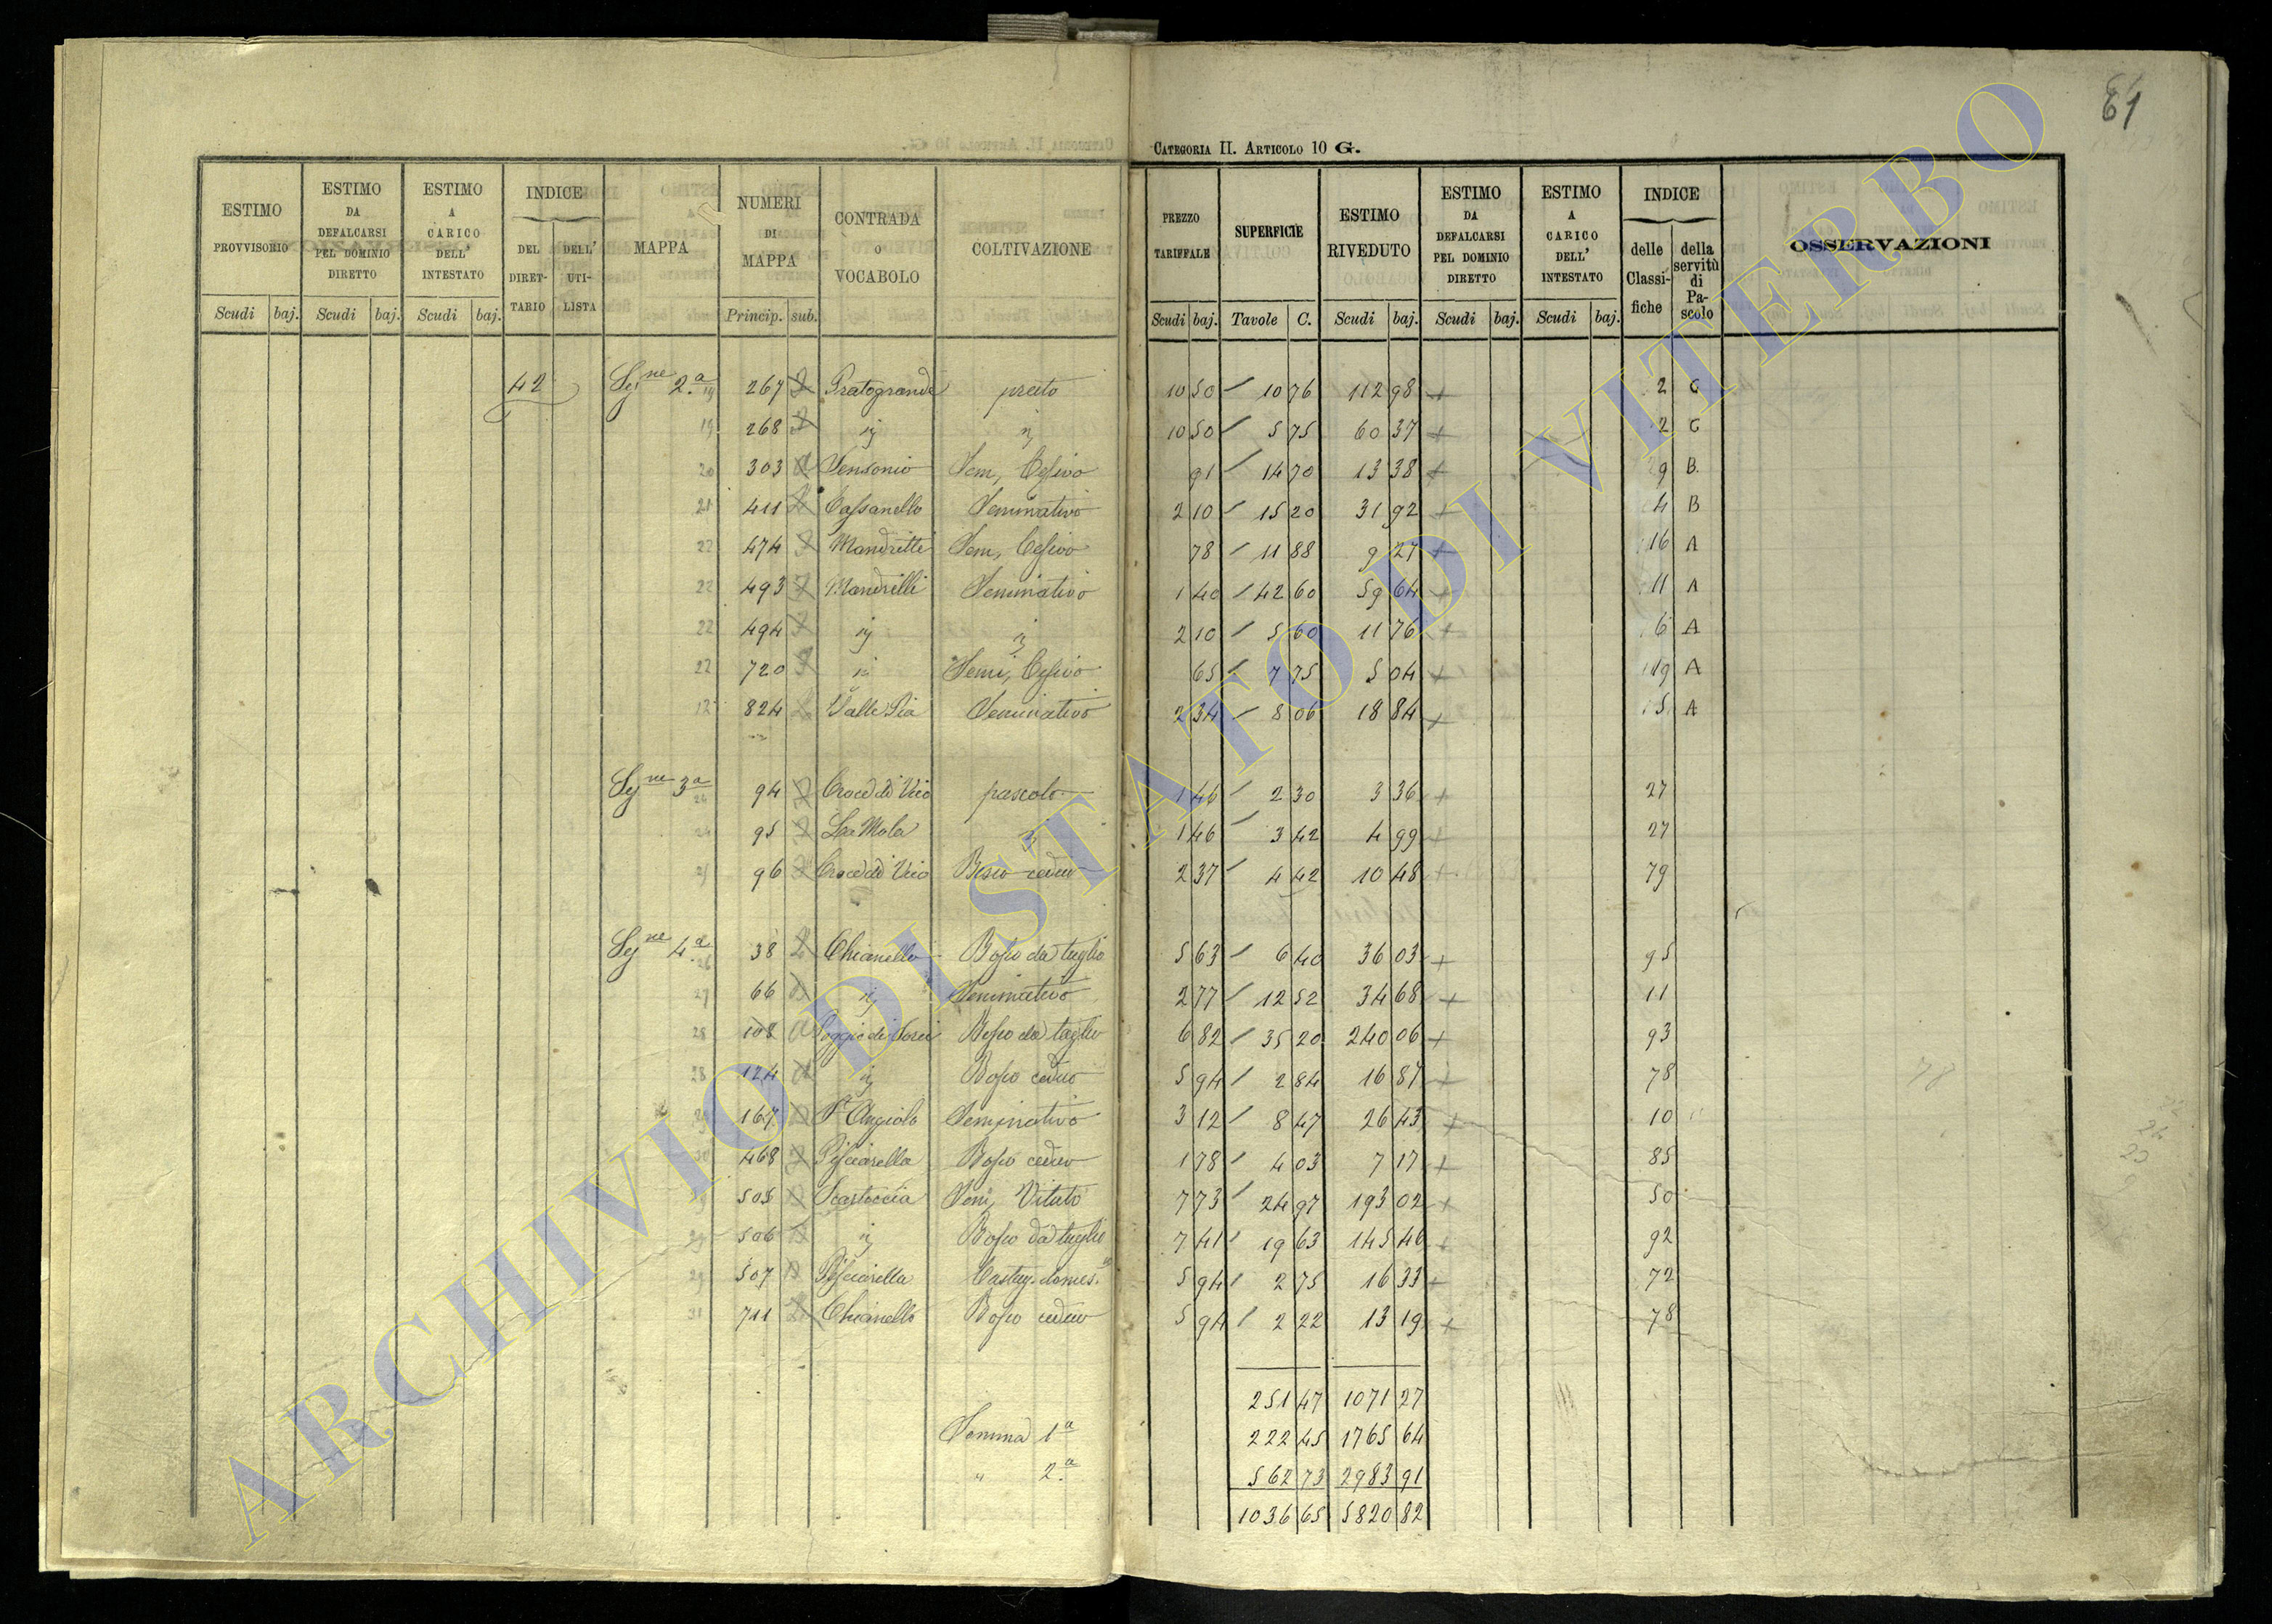 61
CATEGORIA II. ARTICOLO 10 G.
ESTIMO PROVVISORIO | ESTIMO DA DEFALCARSI PEL DOMINIO DIRETTO | ESTIMO A CARICO DELL' INTESTATO | INDICE DEL DIRETTARIO | DELL' UTILISTA | MAPPA | NUMERI DI MAPPA | CONTRADA O VOCABOLO | COLTIVAZIONE | PREZZO TARIFFALE | SUPERFICIE | ESTIMO RIVEDUTO | ESTIMO DA DEFALCARSI PEL DOMINIO DIRETTO | ESTIMO A CARICO DELL' INTESTATO | INDICE delle Classifiche | della servitù di Pascolo | OSSERVAZIONI
Scudi baj. | Scudi baj. | Scudi baj. | Princip. sub. | Scudi baj. | Tavole C. | Scudi baj. | Scudi baj. | Scudi baj.
42 Sezne 2.a 19 267 Pratogrande prato 10 50 10 76 112 98 + 2 C
19 268 ij ij 10 50 5 75 60 37 + 2 C
20 303 Sem, Cesivo 91 14 70 13 38 + 9 B.
21 411 Cassanello Seminativo 2 10 15 20 31 92 + 4 B
22 474 Mandrette Sem, Cesivo 78 11 88 9 27 + 16 A
22 493 Mandrelli Seminativo 1 40 42 60 59 64 + 11 A
22 494 ij ij 2 10 5 60 11 76 + 6 A
22 720 ij Semi, Cesivo 65 7 75 5 04 + 19 A
12 824 Valle Pia Seminativo 2 34 8 06 18 84 + 5 A
Sezne 3a 24 94 Croce di Vico pascolo 1 46 2 30 3 36 + 27
24 95 La Mola ij 1 46 3 42 4 99 + 27
25 96 Croce di Vico Bosco ceduo 2 37 4 42 10 48 + 79
Sezne 4.a 26 38 Chianello Bosco da taglio 5 63 6 40 36 03 + 95
27 66 ij Seminativo 2 77 12 52 34 68 + 11
28 108 Poggio di Bosco da taglio 6 82 35 20 240 06 + 93
28 124 ij Bosco ceduo 5 94 2 84 16 87 + 78
167 S. Angiolo Seminativo 3 12 8 47 26 43 + 10
468 Pisciarella Bosco ceduo 1 78 4 03 7 17 + 85
505 Scartoccia Sem, Vitato 7 73 24 97 193 02 + 50
29 506 ij Bosco da taglio 7 41 19 63 145 46 + 92
29 507 Pisciarella Castag. domes. 5 94 2 75 16 33 + 72
31 711 Chianello Bosco ceduo 5 94 2 22 13 19 + 78
251 47 1071 27
Somma 1a 222 45 1765 64
" 2.a 562 73 2983 91
1036 65 5820 82
78
ARCHIVIO DI STATO DI VITERBO